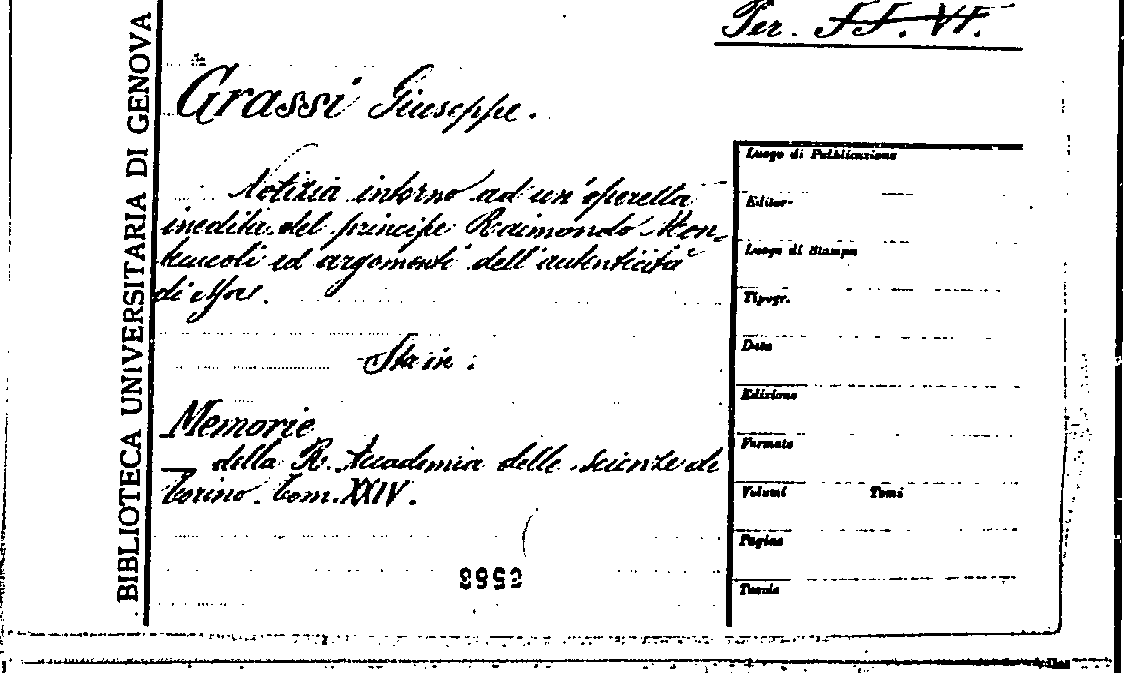 Per. FF. VI.
BIBLIOTECA UNIVERSITARIA DI GENOVA
Grassi Giuseppe.
Notizia intorno ad un'operetta
inedita del principe Raimondo Mon-
tecuccoli ed argomenti dell'autenticità
di
Sta in:
Memorie
— della R. Accademia delle scienze di
Torino. Tom. XXIV.
Luogo di Pubblicazione
Editor-
Luogo di Stampa
Tipogr.
Data
Edizione
Formato
Volumi Tomi
Pagine
Tavole